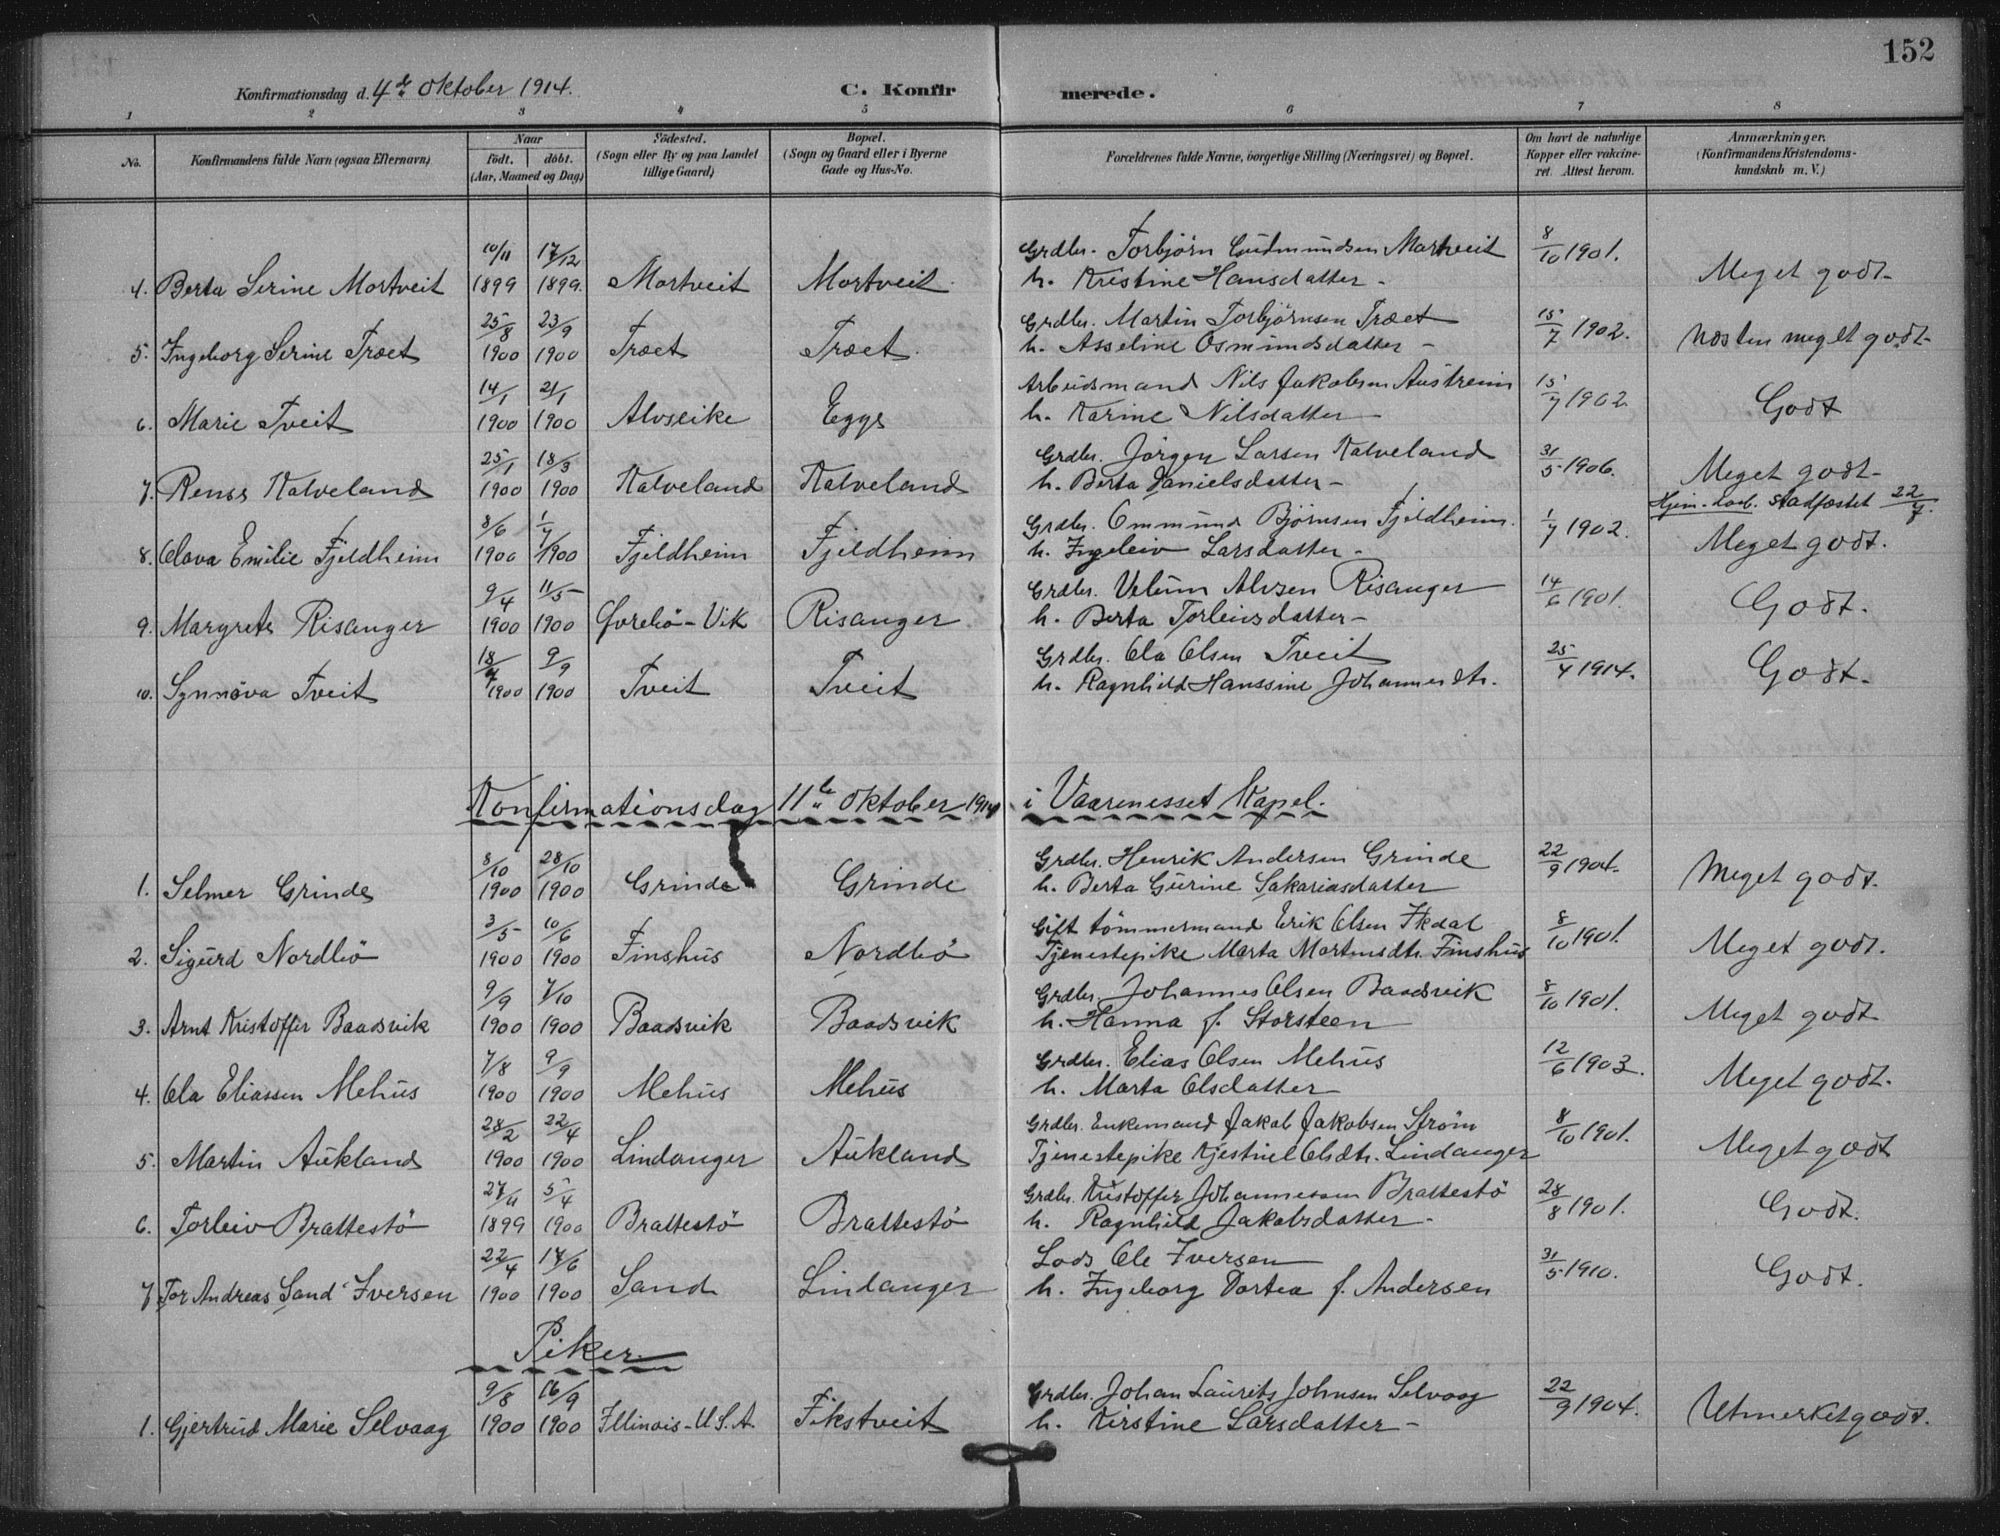 152
Konfirmationsdag d. 4de Oktober 1914.
C. Konfirmerede.
1 2 3 4 5 6 7 8
No.
Konfirmandens fulde Navn (ogsaa Efternavn)
Naar
født. døbt.
(Aar, Maaned og Dag)
Fødested.
(Sogn eller By og paa Landet
tillige Gaard)
Bopæl.
(Sogn og Gaard eller i Byerne
Gade og Hus-No.
Forældrenes fulde Navne, borgerlige Stilling (Næringsvei) og Bopæl.
Om havt de naturlige
Kopper eller vakcine-
ret. Attest herom.
Anmærkninger.
(Konfirmandens Kristendoms-
kundskab m. V.)
10/11 17/12 Grdbr. Torbjörn Gudmundsen Mortveit 8/10 1901.
4. Berta Serine Mortveit 1899 1899. Mortveit Mortveit. h. Kristine Hansdatter - Meget godt-
25/8 23/9 Grdbr. Martin Torbjörnsen Træet 15/7 1902.
5. Ingeborg Serine Træet 1900 1900 Træet Træet. h. Asseline Osmundsdatter - Næsten meget godt-
14/1 21/1 Arbeidsmand Nils Jakobsen Austreim 15/7 1902.
6. Marie Tveit 1900 1900 Alvseike Egge h. Karine Nilsdatter - Godt
25/1 18/3 Grdbr. Jörgen Larsen Kalveland 31/5 1906.
7. Kalveland 1900 1900 Kalveland Kalveland h. Berta Danielsdatter - Meget godt-
Hjem. daab. stadfæstet 22/7.
8/6 1/7 Grdbr. Ommund Björnsen Fjeldheim. 1/7 1902.
8. Olava Emilie Fjeldheim 1900 1900 Fjeldheim Fjeldheim h. Ingeleiv Larsdatter - Meget godt.
9/4 11/5 Grdbr. Alvsen Risanger 14/6 1901.
9. Margrete Risanger 1900 1900 Övrebö-Vik Risanger. h. Berta Torleivsdatter - Godt.
18/7 9/9 Grdbr. Ola Olsen Tveit 25/4 1914.
10. Synnöva Tveit 1900 1900 Tveit Tveit h. Ragnhild Hanssine Johannesdtr. Godt-
Konfirmationsdag 11te Oktober 1914 i Vaarenesset Kapel.
8/10 28/10 Grdbr. Henrik Andersen Grinde 22/9 1904.
1. Selmer Grinde 1900 1900 Grinde Grinde h. Berta Gurine Sakariasdatter Meget godt.
3/5 10/6 Gift tömmermand Erik Olsen 8/10 1901.
2. Sigurd Nordbö 1900 1900 Finshus Nordbö Tjenestepike Marta Mortensdtr. Finshus Meget godt.
9/9 7/10 Grdbr. Johannes Olsen Baadsvik 8/10 1901.
3. Arnt Kristoffer Baadsvik 1900 1900 Baadsvik Baadsvik h. Hanna f. Storsteen Meget godt
7/8 9/9 Grdbr. Elias Olsen Mehus 12/6 1903.
4. Ola Eliassen Mehus 1900 1900 Mehus Mehus h. Marta Olsdatter - Meget godt.
28/2 22/4 Grdbr. Enkemand Jakob Jakobsen Ström 8/10 1901.
5. Martin Aukland 1900 1900 Lindanger Aukland Tjenestepike Kjestine Olsdtr. Lindanger Meget godt
27/11 5/4 Grdbr. Kristoffer Johannessen Brattestö 28/8 1901.
6. Torleiv Brattestö 1899 1900 Brattestö Brattestö h. Ragnhild Jakobsdatter - Godt.
22/4 17/6 Lods Ole Iversen 31/5 1910.
7 Tor Andreas Sand Iversen 1900 1900 Sand Lindanger h. Ingeborg Dortea f. Andersen Godt.
Piker
9/8 16/9 Grdbr. Johan Laurits Johnsen Selvaag 22/9 1904.
1. Gjertrud Marie Selvaag 1900 1900 Illinois-U.S.A. Fikstveit h. Kirstine Larsdatter - Utmerket godt.